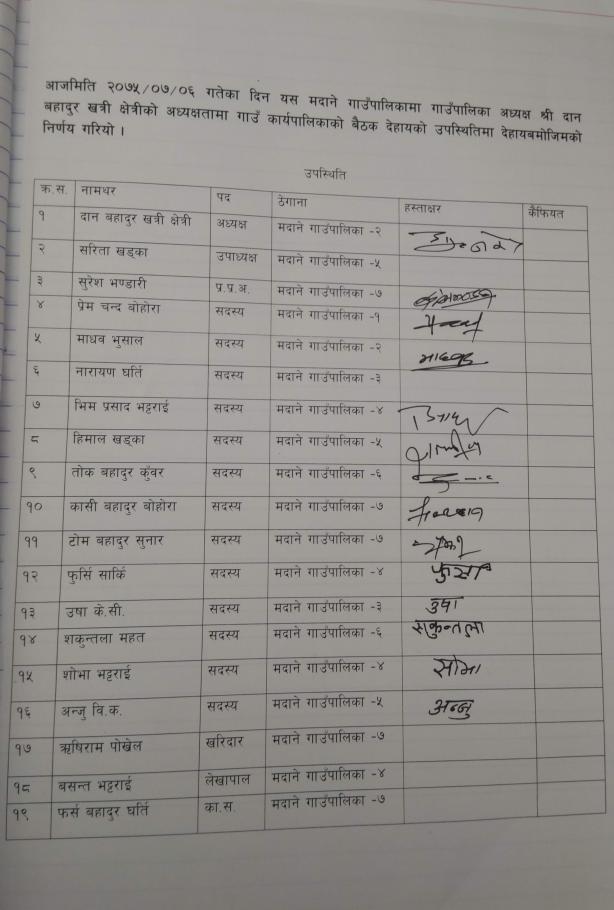 आजमिति २०७५/०७/०६ गतेका दिन यस मदाने गाउँपालिकामा गाउँपालिका अध्यक्ष श्री दान
बहादुर खत्री क्षेत्रीको अध्यक्षतामा गाउँ कार्यपालिकाको बैठक देहायको उपस्थितिमा देहायबमोजिमको
निर्णय गरियो ।
उपस्थिति
क्र.स. नामथर पद ठेगाना हस्ताक्षर कैफियत
१ दान बहादुर खत्री क्षेत्री अध्यक्ष मदाने गाउँपालिका -२
२ सरिता खड्का उपाध्यक्ष मदाने गाउँपालिका -५
३ सुरेश भण्डारी प्र.प्र.अ. मदाने गाउँपालिका -७
४ प्रेम चन्द बोहोरा सदस्य मदाने गाउँपालिका -१
५ माधव भुसाल सदस्य मदाने गाउँपालिका -२
६ नारायण घर्ति सदस्य मदाने गाउँपालिका -३
७ भिम प्रसाद भट्टराई सदस्य मदाने गाउँपालिका -४
८ हिमाल खड्का सदस्य मदाने गाउँपालिका -५
९ तोक बहादुर कुँवर सदस्य मदाने गाउँपालिका -६
१० कासी बहादुर बोहोरा सदस्य मदाने गाउँपालिका -७
११ टोम बहादुर सुनार सदस्य मदाने गाउँपालिका -७
१२ फुर्सि सार्कि सदस्य मदाने गाउँपालिका -४
१३ उषा के.सी. सदस्य मदाने गाउँपालिका -३ उषा
१४ शकुन्तला महत सदस्य मदाने गाउँपालिका -६ सकुन्तला
१५ शोभा भट्टराई सदस्य मदाने गाउँपालिका -४ सोभा
१६ अन्जु वि.क. सदस्य मदाने गाउँपालिका -५ अन्जु
१७ ऋषिराम पोखेल खरिदार मदाने गाउँपालिका -७
१८ बसन्त भट्टराई लेखापाल मदाने गाउँपालिका -४
१९ फर्स बहादुर घर्ति का.स. मदाने गाउँपालिका -७